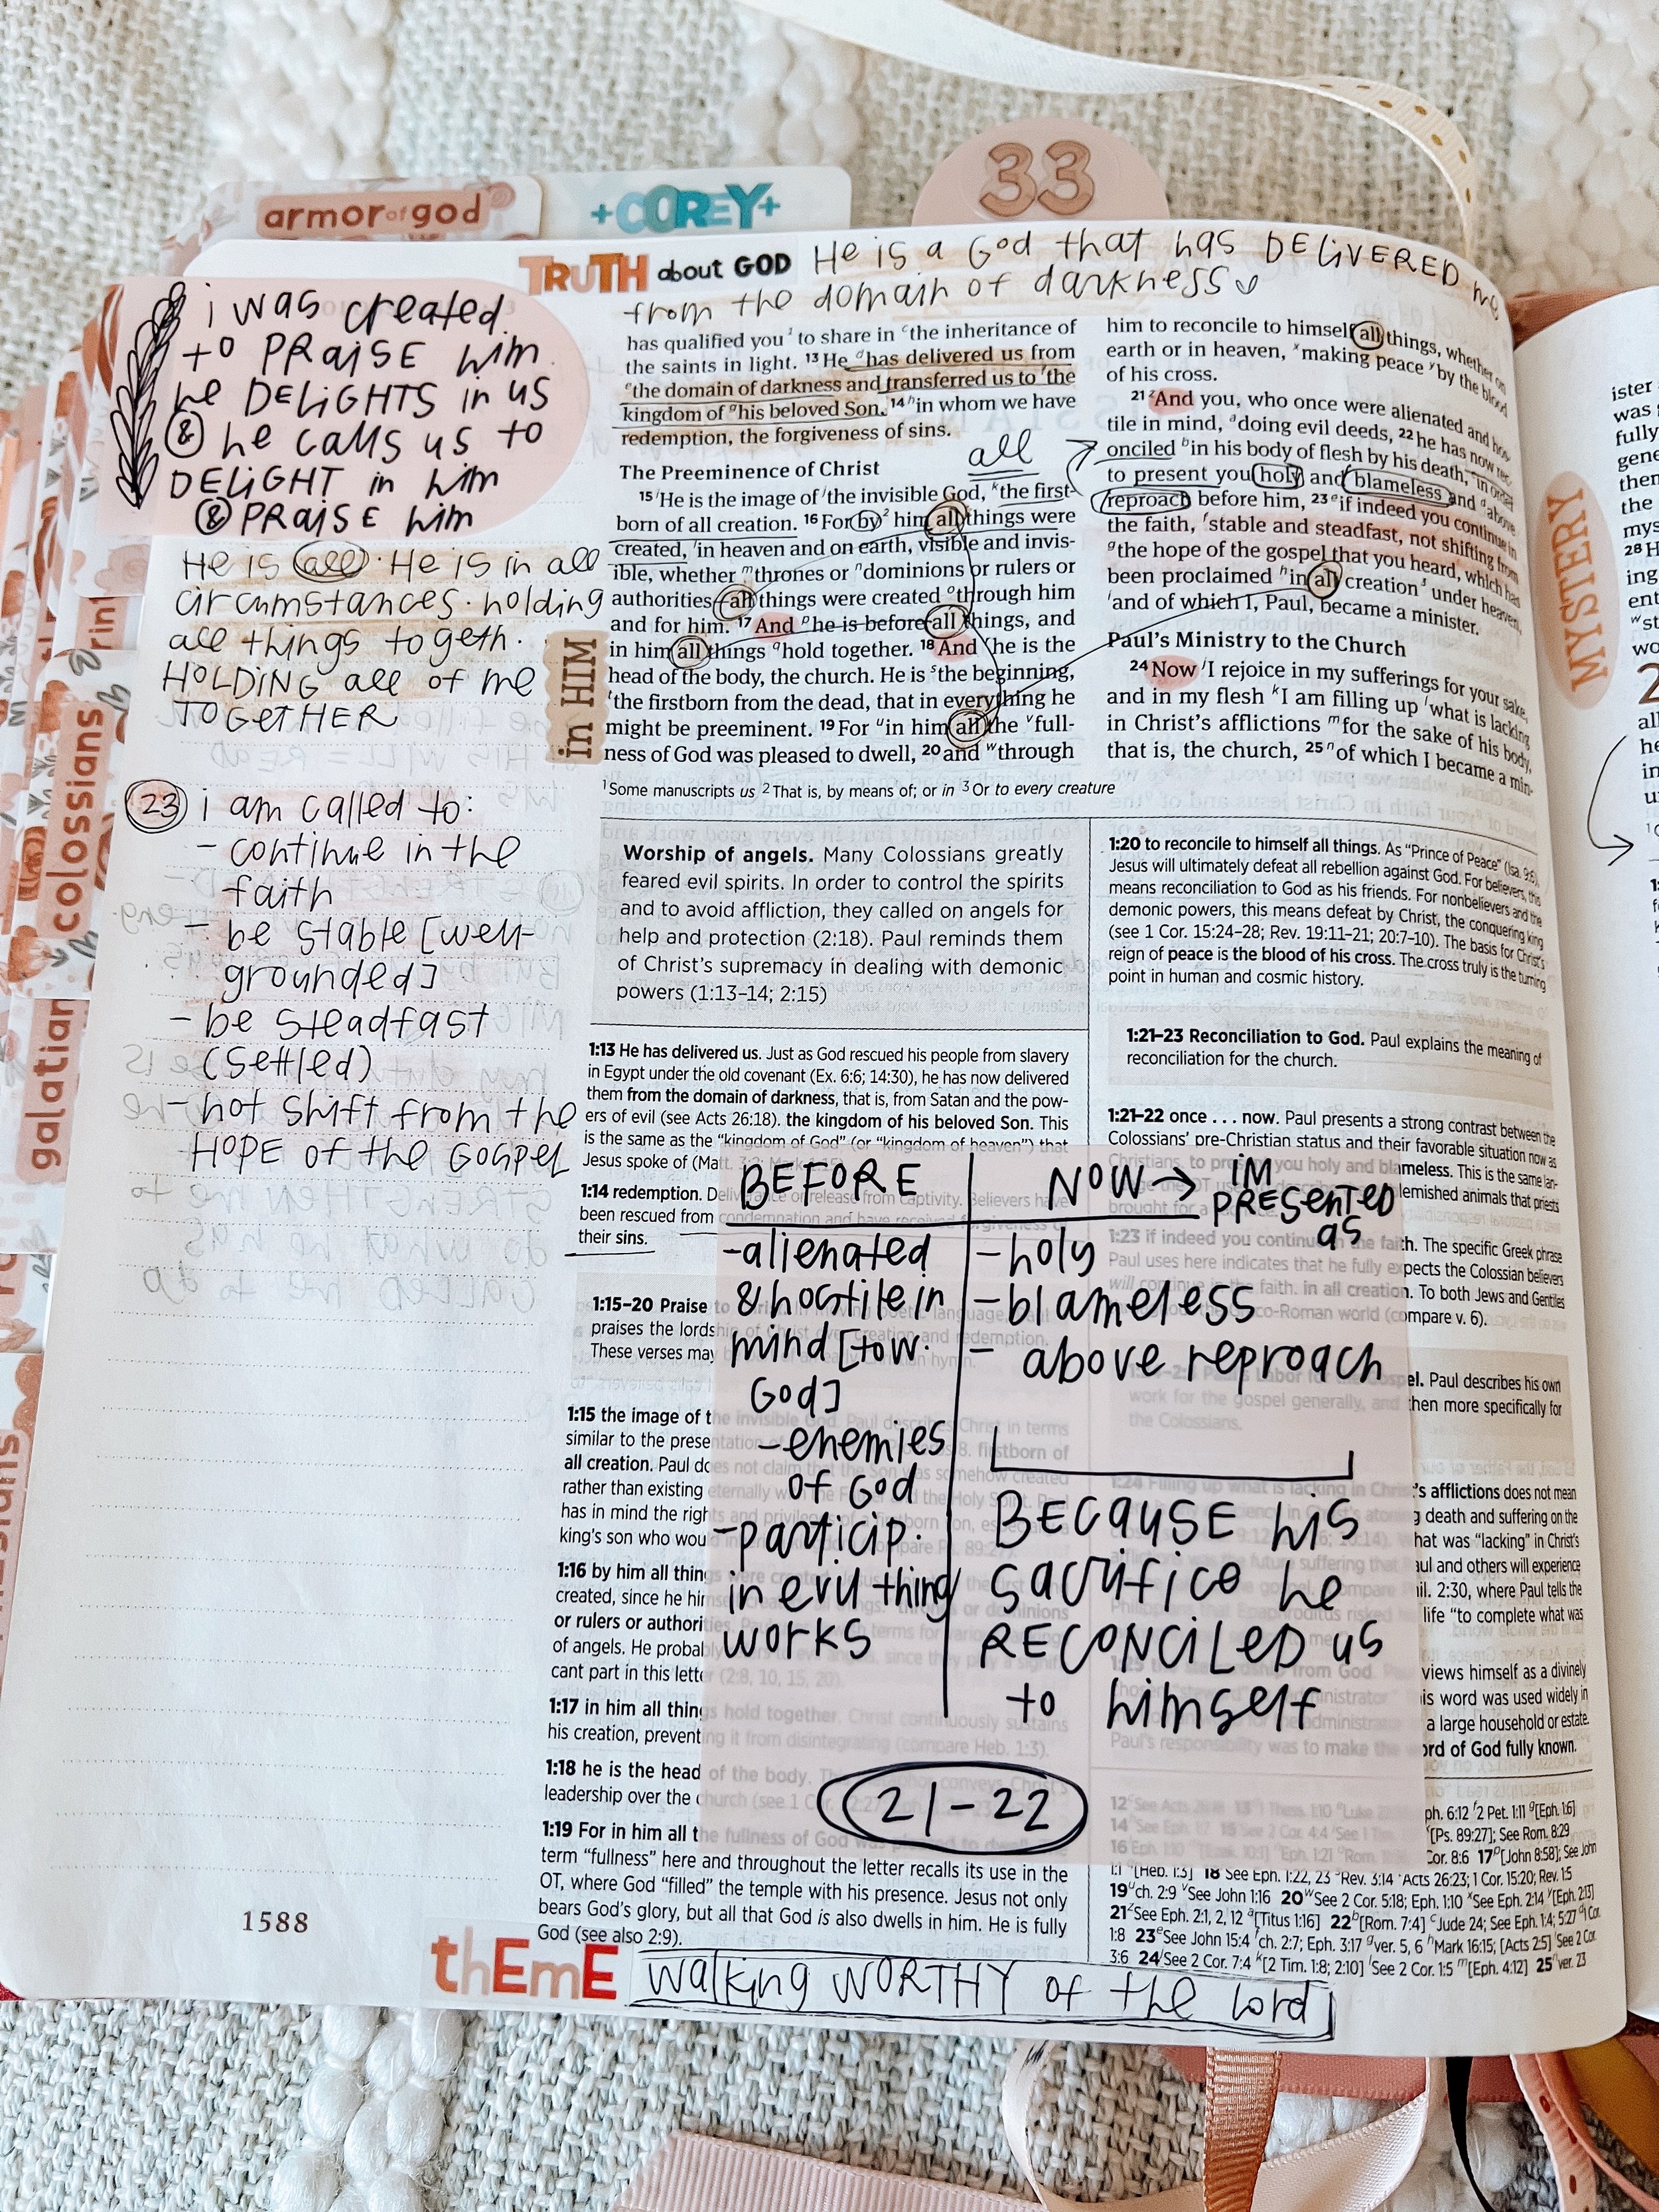 armor of god
+COREY+
33
TRUTH about GOD He is a God that has DELIVERED me
from the domain of darkness
i was created
to PRAISE him
he DELIGHTS in us
& he calls us to
DELIGHT in him
& PRAISE him
He is all. He is in all
circumstances. holding
all things togeth.
HOLDING all of me
TOGETHER
in HIM
23 i am called to:
- continue in the
faith
- be stable [well-
grounded]
- be steadfast
(settled)
- not shift from the
HOPE of the GOSPEL
colossians
galatian
1588
has qualified you¹ to share in ᶜthe inheritance of
the saints in light. ¹³He ᵈhas delivered us from
ᵉthe domain of darkness and transferred us to ᶠthe
kingdom of ᵍhis beloved Son, ¹⁴ʰin whom we have
redemption, the forgiveness of sins.
all
The Preeminence of Christ
¹⁵ⁱHe is the image of ʲthe invisible God, ᵏthe first-
born of all creation. ¹⁶For by² him all things were
created, ˡin heaven and on earth, visible and invis-
ible, whether ᵐthrones or ⁿdominions or rulers or
authorities—all things were created ᵒthrough him
and for him. ¹⁷And ᵖhe is before all things, and
in him all things ᑫhold together. ¹⁸And ʳhe is the
head of the body, the church. He is ˢthe beginning,
ᵗthe firstborn from the dead, that in everything he
might be preeminent. ¹⁹For ᵘin him all the ᵛfull-
ness of God was pleased to dwell, ²⁰and ʷthrough
him to reconcile to himself all things, whether on
earth or in heaven, ˣmaking peace ʸby the blood
of his cross.
²¹ᶻAnd you, who once were alienated and hos-
tile in mind, ᵃdoing evil deeds, ²²he has now rec-
onciled ᵇin his body of flesh by his death, ᶜin order
to present you holy and blameless and ᵈabove
reproach before him, ²³ᵉif indeed you continue in
the faith, ᶠstable and steadfast, not shifting from
ᵍthe hope of the gospel that you heard, which has
been proclaimed ʰin all creation³ under heaven,
ⁱand of which I, Paul, became a minister.
Paul's Ministry to the Church
²⁴Now ʲI rejoice in my sufferings for your sake,
and in my flesh ᵏI am filling up ˡwhat is lacking
in Christ's afflictions ᵐfor the sake of his body,
that is, the church, ²⁵ⁿof which I became a min-
¹Some manuscripts us ²That is, by means of; or in ³Or to every creature
Worship of angels. Many Colossians greatly
feared evil spirits. In order to control the spirits
and to avoid affliction, they called on angels for
help and protection (2:18). Paul reminds them
of Christ's supremacy in dealing with demonic
powers (1:13–14; 2:15)
1:13 He has delivered us. Just as God rescued his people from slavery
in Egypt under the old covenant (Ex. 6:6; 14:30), he has now delivered
them from the domain of darkness, that is, from Satan and the pow-
ers of evil (see Acts 26:18). the kingdom of his beloved Son. This
is the same as the "kingdom of God" (or "kingdom of heaven") that
Jesus spoke of (Matt.
1:14 redemption. Deliverance or release from captivity. Believers have
been rescued from condemnation and have received forgiveness
their sins.
1:15–20 Praise
praises the lords
These verses may
1:15 the image of the invisible God. Paul describes Christ in terms
similar to the presentation
all creation. Paul does not claim that the Son was somehow created
rather than existing eternally
has in mind the rig
king's son who wou
1:16 by him all thin
created, since he
or rulers or authori
of angels. He probab
cant part in this lette (2:8, 10, 15, 20).
1:17 in him all things hold together. Christ continuously sustains
his creation, preventing it from disintegrating (compare Heb. 1:3).
1:18 he is the head of the body.
leadership over the church
1:19 For in him all the fullness of God was pleased to dwell
term "fullness" here and throughout the letter recalls its use in the
OT, where God "filled" the temple with his presence. Jesus not only
bears God's glory, but all that God is also dwells in him. He is fully
God (see also 2:9).
1:20 to reconcile to himself all things. As "Prince of Peace" (Isa. 9:6),
Jesus will ultimately defeat all rebellion against God. For believers, this
means reconciliation to God as his friends. For nonbelievers and the
demonic powers, this means defeat by Christ, the conquering king
(see 1 Cor. 15:24–28; Rev. 19:11–21; 20:7–10). The basis for Christ's
reign of peace is the blood of his cross. The cross truly is the turning
point in human and cosmic history.
1:21–23 Reconciliation to God. Paul explains the meaning of
reconciliation for the church.
1:21–22 once . . . now. Paul presents a strong contrast between the
Colossians' pre-Christian status and their favorable situation now as
Christians, to present you holy and blameless. This is the same lan-
lemished animals that priests
1:23 if indeed you continue in the faith. The specific Greek phrase
Paul uses here indicates that he fully expects the Colossian believers
will continue in the faith. in all creation. To both Jews and Gentiles
co-Roman world (compare v. 6).
el. Paul describes his own
work for the gospel generally, and then more specifically for
the Colossians.
1:24 Filling up what is lacking in Christ's afflictions does not mean
g death and suffering on the
hat was "lacking" in Christ's
aul and others will experience
il. 2:30, where Paul tells the
life "to complete what was
views himself as a divinely
is word was used widely in
a large household or estate.
Paul's responsibility was to make the word of God fully known.
BEFORE
-alienated
& hostile in
mind [tow.
God]
-enemies
of God
-particip.
in evil thing/
works
NOW → im
PRESENTED
as
-holy
-blameless
- above reproach
BECAUSE his
sacrifice he
RECONCILED us
to himself
21-22
ph. 6:12 ᶠ2 Pet. 1:11 ᵍ[Eph. 1:6]
[Ps. 89:27]; See Rom. 8:29
Cor. 8:6 17ᵖ[John 8:58]; See John
1:1 [Heb. 1:3] 18 See Eph. 1:22, 23 ˢRev. 3:14 ᵗActs 26:23; 1 Cor. 15:20; Rev. 1:5
19ᵘch. 2:9 ᵛSee John 1:16 20ʷSee 2 Cor. 5:18; Eph. 1:10 ˣSee Eph. 2:14 ʸ[Eph. 2:13]
21ᶻSee Eph. 2:1, 2, 12 ᵃ[Titus 1:16] 22ᵇ[Rom. 7:4] ᶜJude 24; See Eph. 1:4; 5:27 ᵈ1 Cor.
1:8 23ᵉSee John 15:4 ᶠch. 2:7; Eph. 3:17 ᵍver. 5, 6 ʰMark 16:15; [Acts 2:5] ⁱSee 2 Cor.
3:6 24ʲSee 2 Cor. 7:4 ᵏ[2 Tim. 1:8; 2:10] ˡSee 2 Cor. 1:5 ᵐ[Eph. 4:12] 25ⁿver. 23
thEmE walking WORTHY of the Lord
MYSTERY
ister
was
fully
gene
the
mys
28 H
ing
ent